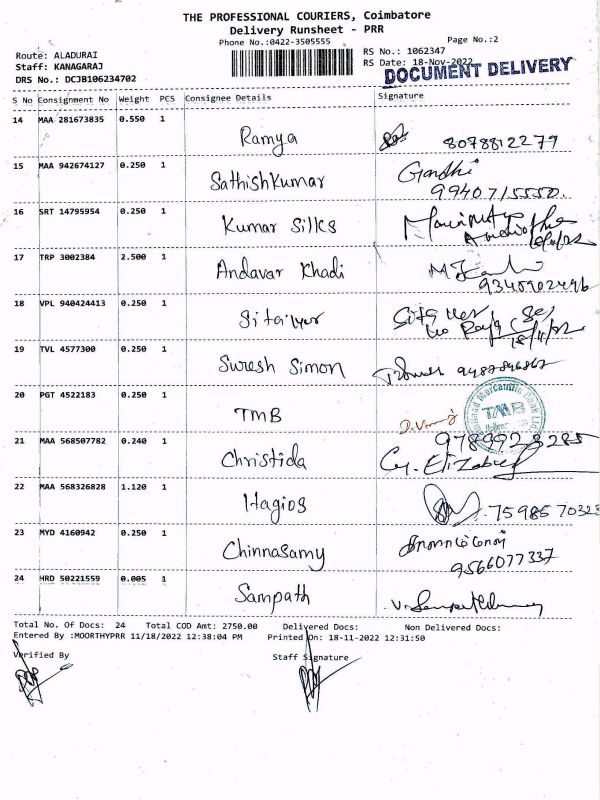 THE PROFESSIONAL COURIERS, Coimbatore
Delivery Runsheet - PRR
Phone No.:0422-3505555
Page No.:2
Route: ALADURAI
RS No.: 1062347
Staff: KANAGARAJ
RS Date: 18-Nov-2022
DRS No.: DCJB106234702
DOCUMENT DELIVERY
S No Consignment No Weight PCS Consignee Details Signature
14 MAA 281673835 0.550 1 Ramya 8078812279
15 MAA 942674127 0.250 1 Sathishkumar Gandhi
9940715550.
16 SRT 14795954 0.250 1 Kumar Silks
17 TRP 3002384 2.500 1 Andavar Khadi
9345902496
18 VPL 940424413 0.250 1
19 TVL 4577300 0.250 1 Suresh Simon 9487846862
20 PGT 4522183 0.250 1 TMB TMB
21 MAA 568507782 0.240 1 Christida 9789923285
22 MAA 568326828 1.120 1 Hagios 7598570323
23 MYD 4160942 0.250 1 Chinnasamy
9566077337
24 HRD 50221559 0.005 1 Sampath
Total No. Of Docs: 24 Total COD Amt: 2750.00 Delivered Docs: Non Delivered Docs:
Entered By :MOORTHYPRR 11/18/2022 12:38:04 PM Printed On: 18-11-2022 12:31:50
Verified By Staff Signature